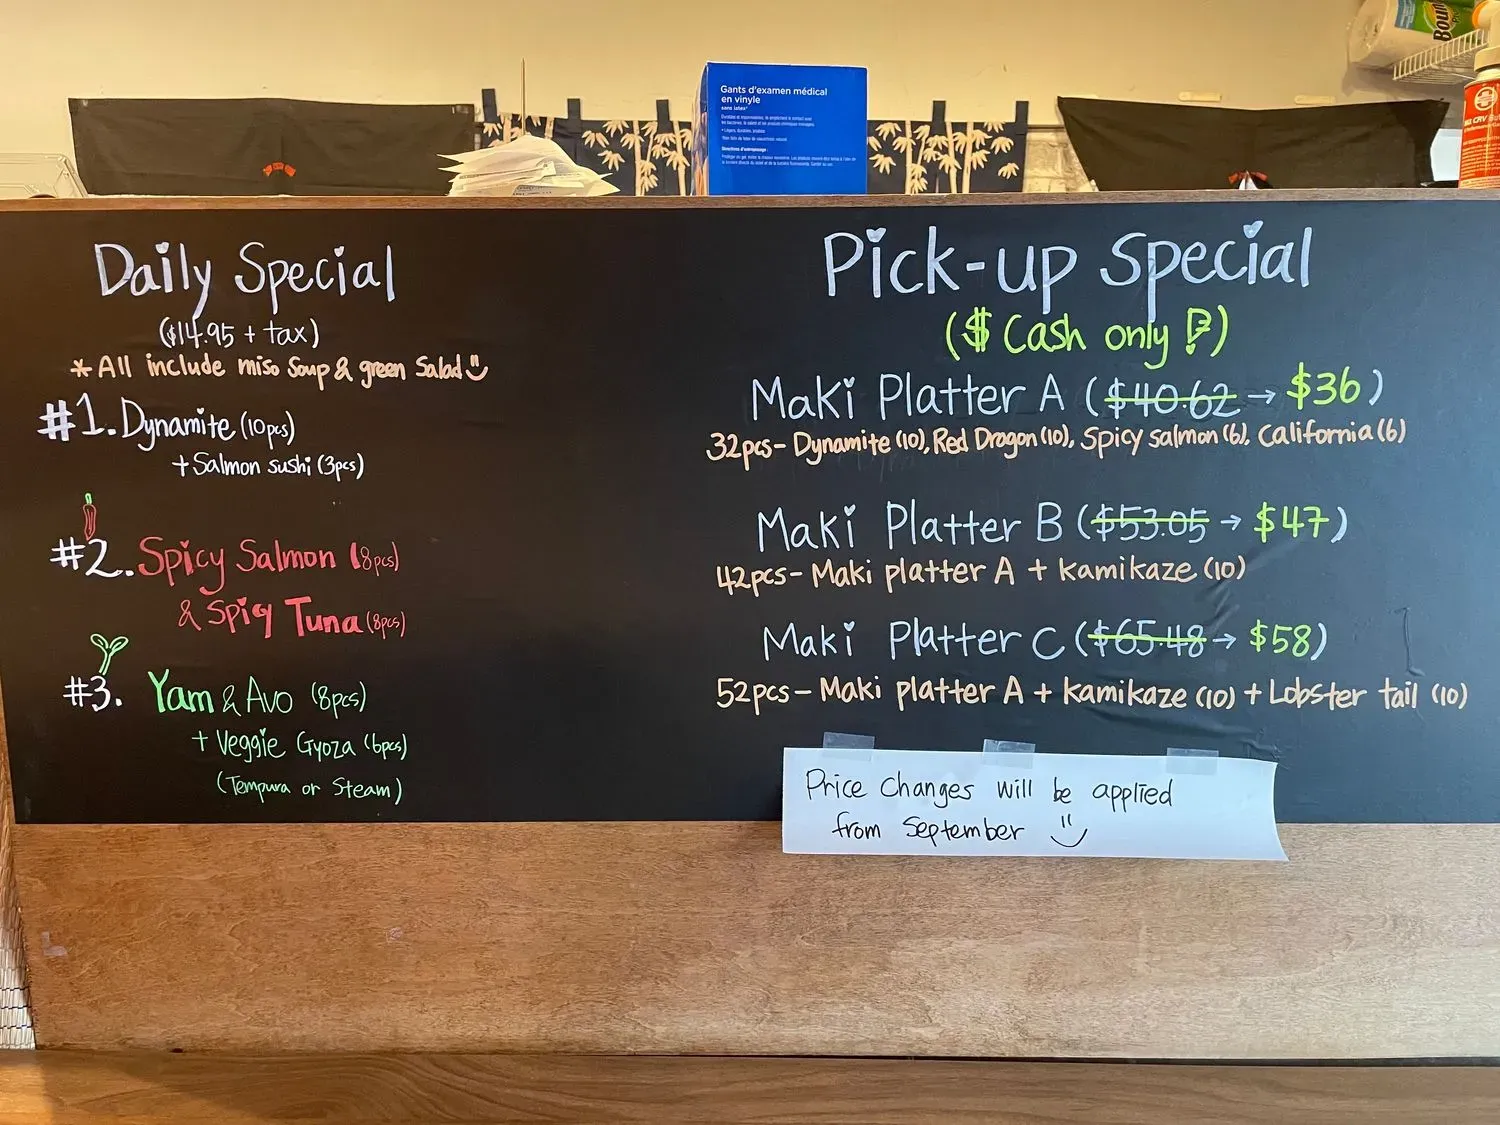 Gants d'examen médical
en vinyle
sans latex*
Bou
Daily Special
($14.95 + tax)
*All include miso soup & green salad
#1. Dynamite (10pcs)
+ Salmon sushi (3pcs)
#2. Spicy Salmon (8pcs)
& Spicy Tuna (8pcs)
#3. Yam & Avo (8pcs)
+ Veggie Gyoza (6pcs)
(Tempura or Steam)
Pick-up Special
($ Cash only !)
Maki Platter A ($40.62 → $36)
32pcs- Dynamite (10), Red Dragon (10), Spicy salmon (6), California (6)
Maki Platter B ($53.05 → $47)
42pcs- Maki platter A + Kamikaze (10)
Maki Platter C ($65.48 → $58)
52pcs- Maki platter A + Kamikaze (10) + Lobster tail (10)
Price changes will be applied
from September